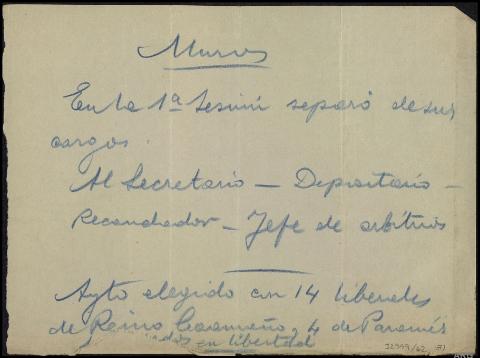 Muros
En la 1ª Sesión separó de sus
cargos
Al Secretario — Depositario —
Recaudador — Jefe de arbitrios
Ayto elegido con 14 liberales
de Reino Caamaño y 4 de
en libertad